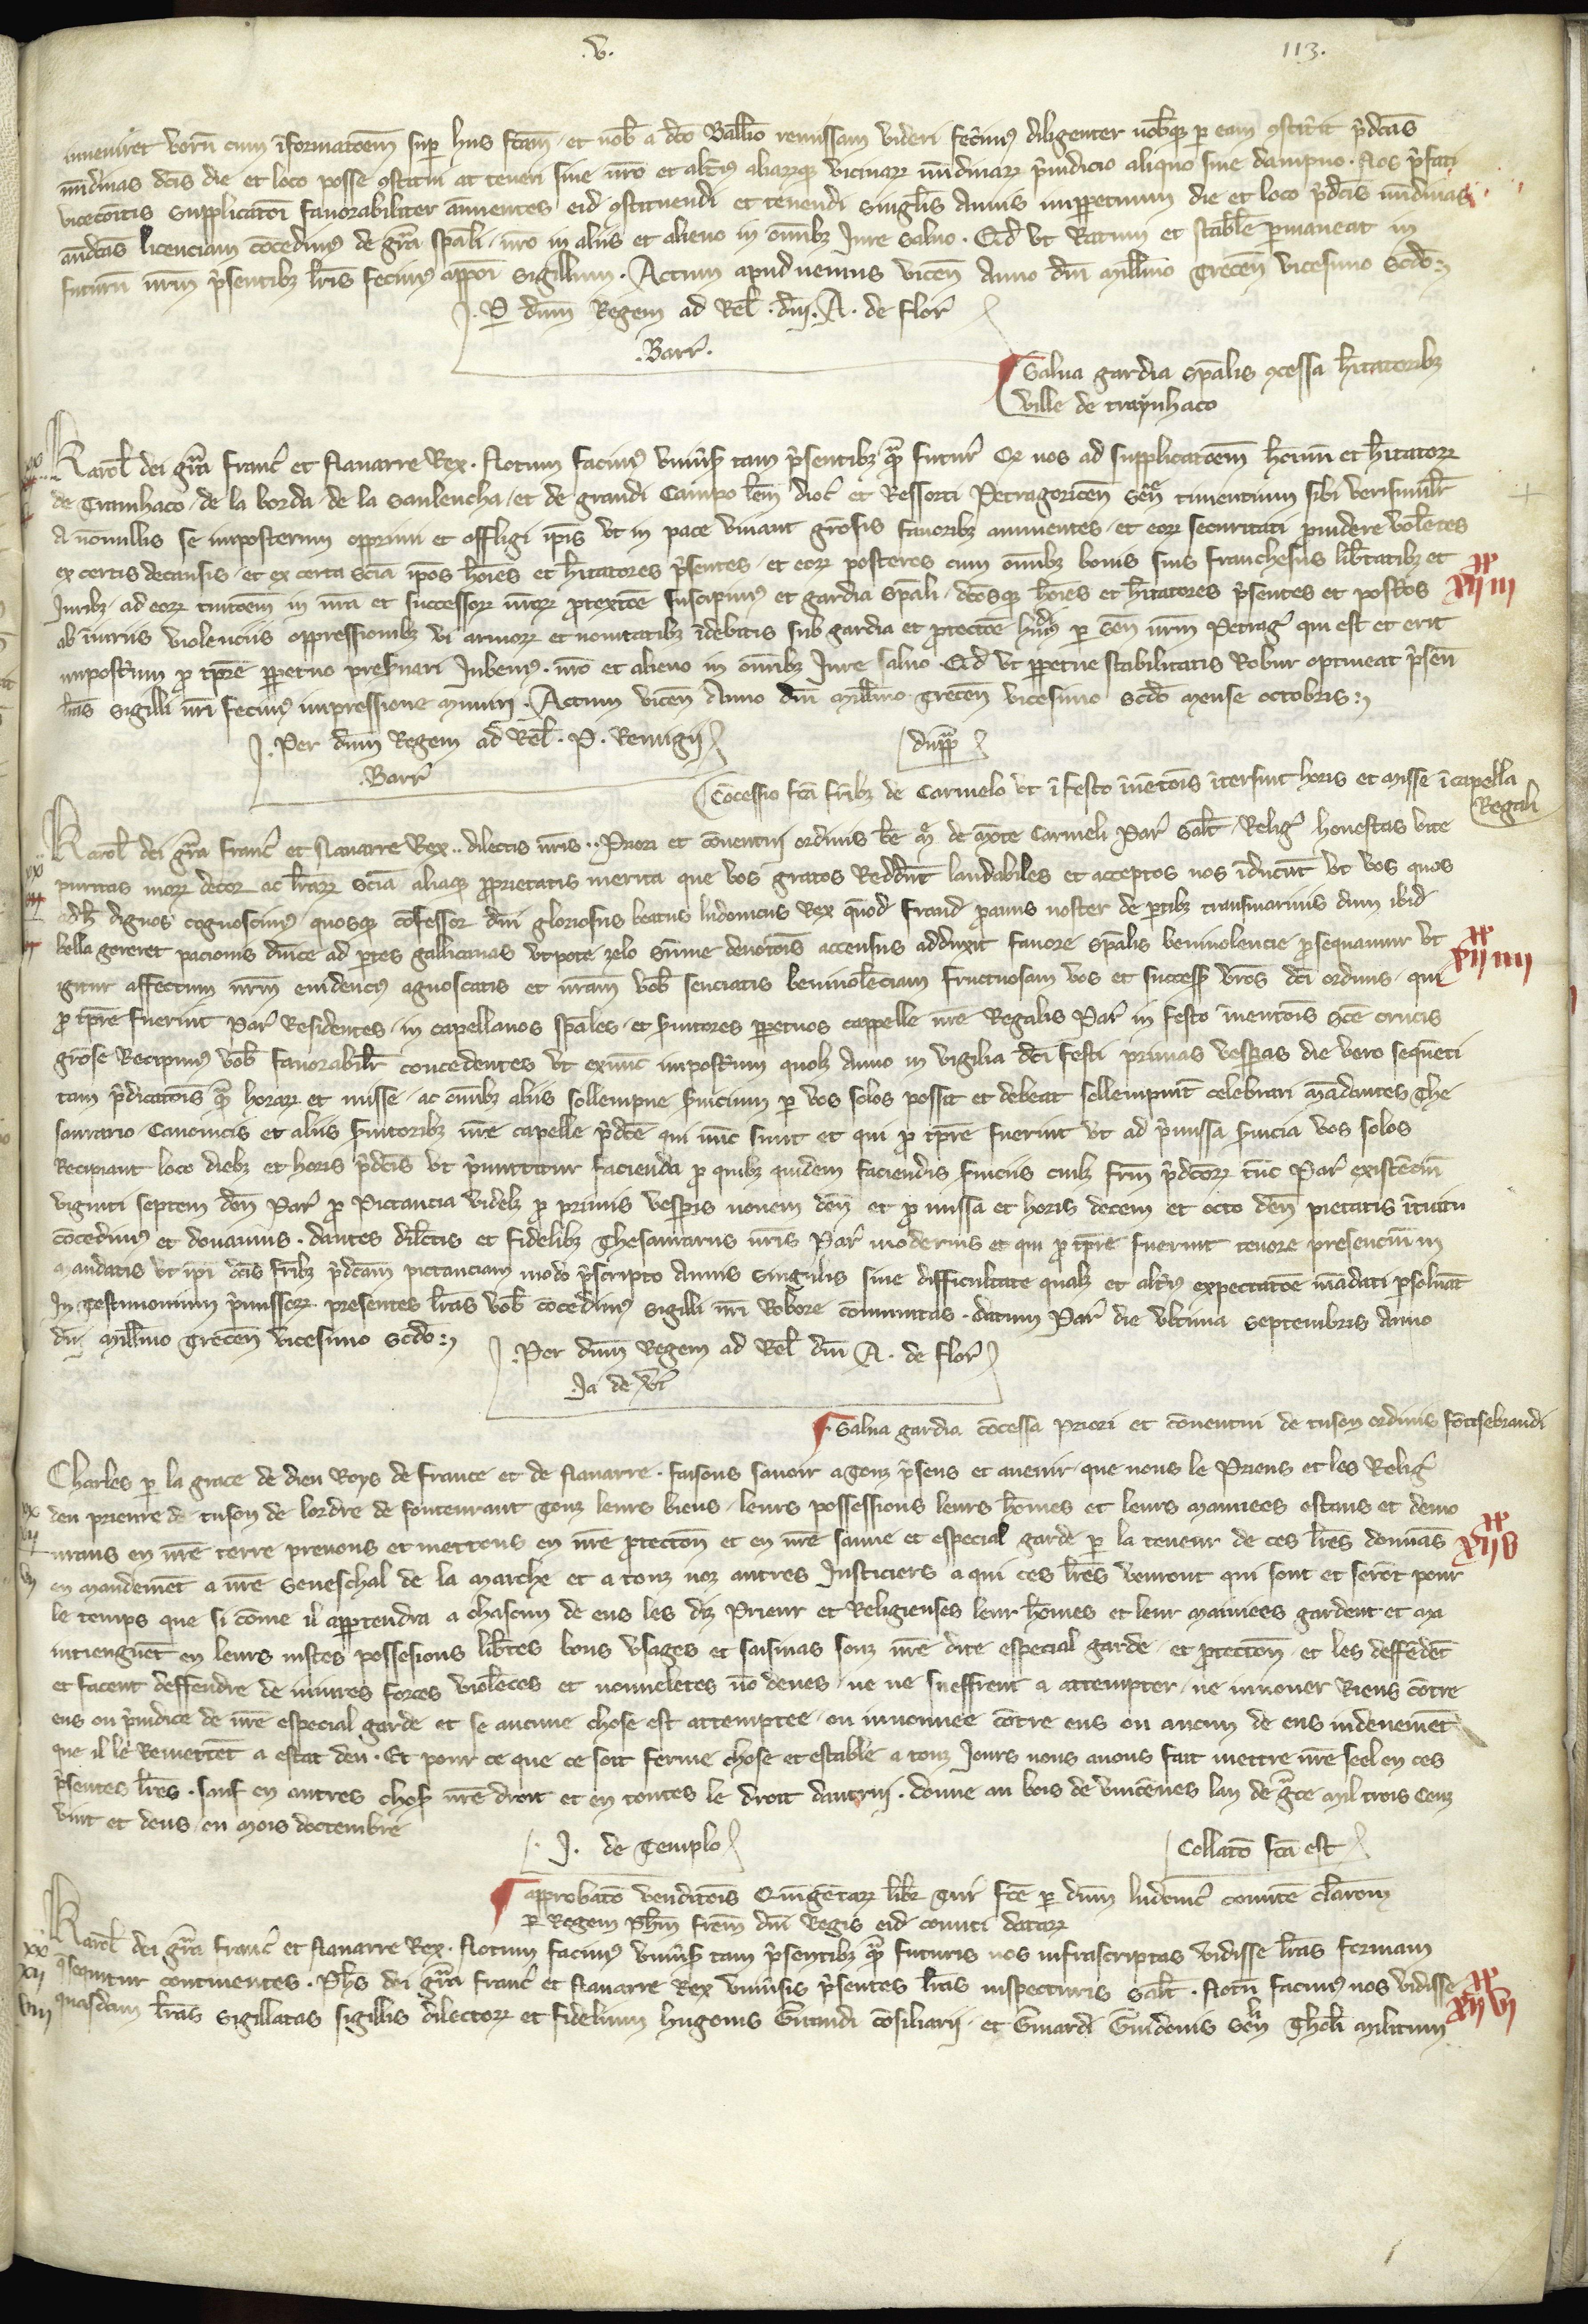 .v. 113.
inveniret verum cum īformatōem suꝑ hiis fcām et nob̄ a dc̄o Ballīo remissam videri fecimꝰ diligenter nobqꝫ ꝑ eam ꝯstitit p̄dcās
nūdinas dcīs die et loco posse ꝯstitui ac teneri sine nr̄o et altiꝰ aliarꝝqꝫ vicinarꝝ nūdinarꝝ p̄iudicio aliquo siue dampno. Nos p̄fati
vicecōitis supplicatōi fauorabiliter ānuentes eid ꝯstituendi et tenendi singlīs Annis imꝑpetuum die et loco p̄dcīs nūdinas
andcās licenciam cōcedimꝰ de grā spāli nr̄o in aliis et alieno in om̄ibꝫ Iure saluo. Qd vt Ratum et stable ꝑmaneat in
futurū nr̄m p̄sentibꝫ lr̄is fecimꝰ appōi sigillum. Actum apud viemus vicen̄ Anno dn̄i Mill̄mo Trecen̄ vicesimo sc̄do
Ꝑ dn̄m Regem ad Rel̄. dn̄i. A. de flor̄
Barr̄.
Salua gardia spālis ꝯcessa h̄itatoribꝫ
ville de traynhaco
Karol̄ dei grā Franc̄ et Nauarre Rex. Notum facimꝰ vniūs̄ tam p̄sentibꝫ qꝫ futur̄ Qꝫ nos ad supplicatōem hoīum et h̄itatorꝝ
de Tranhaco de la borda de la Saulencha et de grandi Campo lem̄ dioc̄ et Ressorti Petragoricen̄ sen̄ timentium sibi verisimilr̄
A nonnullis se imposterum opprimi et affligi ip̄is vt in pace viuant grōsis fauoribꝫ annuentes et eorꝝ securitati prouidere volentes
ex certis decausis et ex certa sciā ip̄os hoīes et h̄itatores p̄sentes et eorꝝ posteros cum om̄ibꝫ bonis suis franchesiis lib̄tatibꝫ et
Iuribꝫ ad eorꝝ tuitōem in nr̄a et successorꝝ nr̄orꝝ ꝓtexcōe suscipimꝰ et gardia spāli dcōsqꝫ hoīes et h̄itatores p̄sentes et postos
ab iniuriis violenciis oppressionibꝫ vi armorꝝ et nouitatibꝫ īdebitis sub gardia et ꝓtectōe hmōi ꝑ Sen̄ nr̄m Petraḡ qui est et erit
impostm ꝓ tp̄re ꝑpetuo preseruari Iubemꝰ. nr̄o et alieno in om̄ibꝫ Iure saluo. Qd vt ꝑpetue stabilitatis Robur optineat p̄sen̄
lr̄as sigilli nr̄i fecimꝰ impressione muniri. Actum vicen̄ Anno dn̄i Mill̄mo Trecen̄ vicesimo sc̄do Mense octobris
Per dn̄m Regem ad Rel̄. P. Remigij dupp̄
Barr̄
Cōcessio fcā fr̄ibꝫ de Carmelo vt ī festo īuētōis īterſint horis et misse ī capella
Regali
Karol̄ dei grā Franc̄ et Nauarre Rex.. dilectis nr̄is.. Priori et conuentui ordinis bē M̄ de mōte Carmeli Par̄ Salt̄. Reliḡ honestas vite
puritas morꝝ decor ac lr̄arꝝ sciā aliaqꝫ ꝓprietatis merita que vos gratos Reddūt laudabiles et acceptos nos īducūt vt vos quos
adh̄ dignos cognoscimꝰ quosqꝫ cōfessor dn̄i gloriosus beatus ludouicus Rex quōd Francī ꝓauus noster de ꝑtibꝫ transmarinis dum ibid
bella gereret pacionis dn̄ice ad ꝑtes gallicanas vtpote zelo summe deuotōis accensus adduxit fauore spālis beniuolencie ꝓsequamur vt
igitur affectum nr̄m euidenciꝰ agnoscatis et nr̄am vob̄ senciatis beniuolēciam fructuosam vos et success̄ vr̄os dci ordinis qui
ꝓ tp̄re fuerint Par̄ Residentes in capellanos spāles et ſuitores ꝑpetuos cappelle nr̄e Regalis Par̄ in festo inuentōis Scē crucis
grōse Recipimꝰ vob̄ fauorabilr̄ concedentes vt exnūc impostm quolꝫ Anno in vigilia dci festi primas vesꝑas die vero sequēti
tam p̄dicatōis qꝫ horarꝝ et misse ac om̄ibꝫ aliis sollempne ſuicium ꝑ vos solos possit et debeat sollempnit̄ celebrari Mādantes The
saurario Canonicis et aliis ſuitoribꝫ nr̄e capelle p̄dcē qui nūc sunt et qui ꝓ tp̄re fuerint vt ad p̄missa ſuicia vos solos
Recipiant loco diebꝫ et horis p̄dcīs vt p̄mittitur facienda ꝓ quibꝫ quidem faciendis ſuiciis cuilꝫ fr̄m p̄dcorꝝ tūc Par̄ existēciū
viginti septem den̄ Par̄ ꝓ Pictancia videlꝫ ꝓ primis vesꝑis nouem den̄ et ꝓ missa et horis decem et octo den̄ pietatis ītuitu
cōcedimꝰ et donamus. dantes dilc̄tis et fidelibꝫ Thesaurariis nr̄is Par̄ modernis et qui ꝓ tp̄re fuerint tenore presencium in
mandatis vt ip̄i dc̄is fr̄ibꝫ p̄dcām pictanciam modo p̄scripto Annis singulis sine difficultate qualꝫ et altiꝰ expectatōe mādati ꝑsoluāt
In Testimonium p̄missorꝝ presentes lr̄as vob̄ cōcedimꝰ sigilli nr̄i Robore cōmunitas. datum Par̄ die vltima septembris Anno
dn̄i Mill̄mo Trecen̄ vicesimo sc̄do
Per dn̄m Regem ad Rel̄ dn̄i A. de flor̄
Ja de
Salua gardia cōcessa Priori et conuentui de tuson ordinis fōtisebraudi
Charles ꝑ la grace de dieu Roys de france et de Nauarre. faisons sauoir a Touz p̄sens et auenir que nous le Prieus et les Reliḡ
deu prieure de tuson de lordre de fonteuraut Touz leurs biens leurs possessions leurs hōmes et leurs maniees estans et demo
urans en nr̄e terre prenons et mettons en nr̄e ꝓtection et en nr̄e sauue et especial garde ꝑ la teneur de ces lr̄es donnās
en mandemēt a nr̄e Seneschal de la marche et a touz noz autres Iusticiers a qui ces lr̄es venront qui sont et serōt pour
le temps que si cōme il apꝑtendra a chascun de eus les diz Prieur et Religieuses leur hōmes et leur Mainiees gardent et Ma
intienguēt en leurs iustes possesions lib̄tes bons vsages et saisines souz nr̄e dite especial garde et ꝓtection et les deffēdēt
et facent deffendre de iniures forces violēces et nouueletes nō deues ne ne sueffrent a attempter ne innouer Riens cōtre
eus ou p̄iudice de nr̄e especial garde et se aucune chose est attemptee ou innouuee cōtre eus ou aucun de eus indeuemēt
que il le Remettēt a estat deu. Et pour ce que ce soit ferme chose et estable a touz Iours nous auons fait mettre nr̄e seel en ces
p̄sentes lr̄es. sauf en autres chos̄ nr̄e droit et en toutes le droit dautruj. donne au bois de vincēnes lan de grce Mil trois Cenz
vint et deus en Mois doctembre
J. de Templo Collatō fcā est
approbatō venditōis Quingētarꝝ libr̄ Tur̄ fcē ꝑ dn̄m ludouic̄ comitē clarom
ꝑ Regem Ph̄m frem̄ dn̄i Regis eid comiti datarꝝ
Karol̄ dei grā Franc̄ et Nauarre Rex. Notum facimꝰ vniūs̄ tam p̄sentibꝫ qꝫ futuris nos infrascriptas vidisse lr̄as formam
q̄ sequitur continentes. Ph̄s dei grā Franc̄ et Nauarre Rex vniūsis p̄sentes lr̄as inspecturis Salt̄. Notū facimꝰ nos vidisse
quasdam lr̄as sigillatas sigillis dilectorꝝ et fidelium hugonis Giraudi cōsiliarij et Guiardi Guidonis Sen̄ Thol̄ Militum